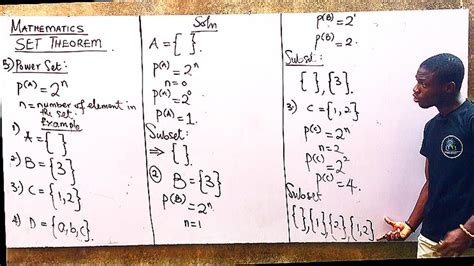 MATHEMATICS
SET THEOREM
5) Power Set:
P(A) = 2^n
n = number of element in
the set.
Example
1) A = { }
2) B = {3}
3) C = {1,2}
4) D = {a,b,c}
Soln
A = { }.
P(A) = 2^n
n = 0
P(A) = 2^0
P(A) = 1.
Subset:
⇒ { }.
② B = {3}
P(B) = 2^n
n = 1
P(B) = 2^1
P(B) = 2.
Subset:
{ }, {3}.
3) C = {1,2}
P(C) = 2^n
n = 2
P(C) = 2^2
P(C) = 4.
Subset
{ }, {1}, {2}, {1,2}